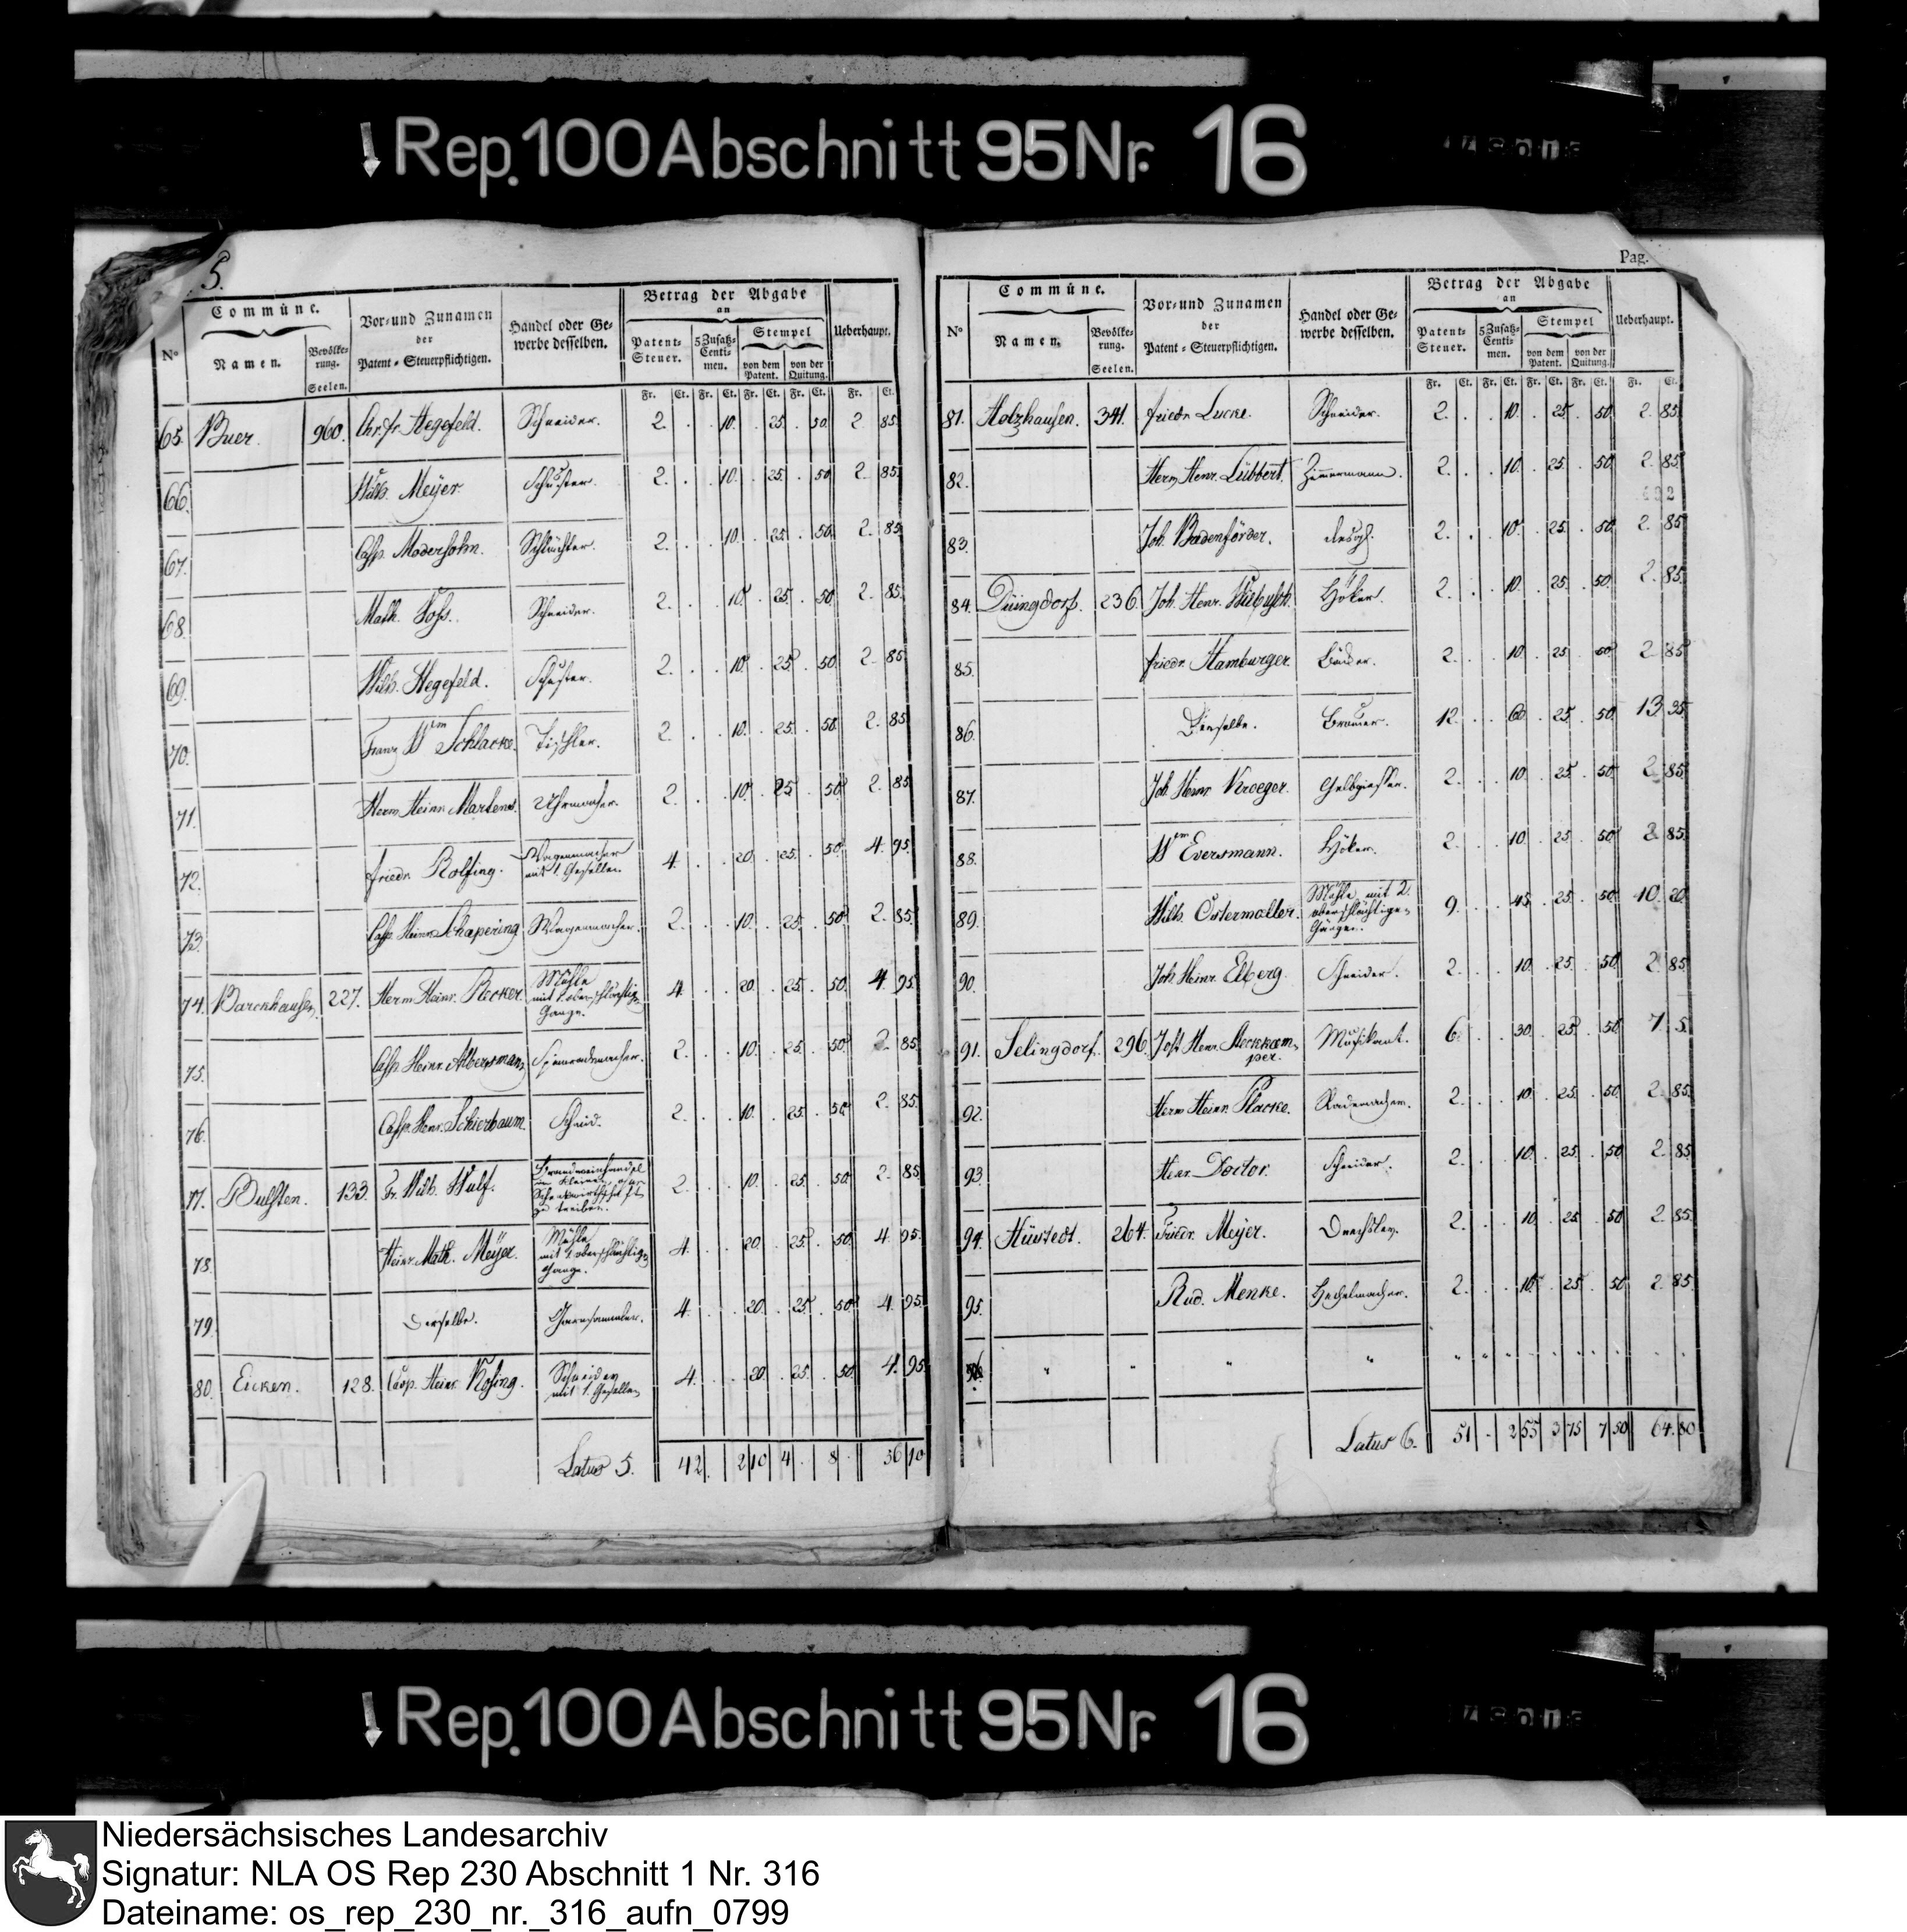 Rep. 100 Abschnitt 95 Nr. 16
5.
N° Commüne. Vor- und Zunamen der Patent-Steuerpflichtigen. Handel oder Gewerbe desselben. Betrag der Abgabe an Ueberhaupt.
Namen. Bevölkerung. Seelen. Patent-Steuer. 5 Zusatz-Centimen. Stempel von dem Patent. von der Quitung.
Fr. Ct. Fr. Ct. Fr. Ct. Fr. Ct. Fr. Ct.
65. Buer. 960. Chr. fr. Hegefeld. Schneider. 2. . . 10. . 25. . 50. 2. 85.
66. Wilh. Meÿer. Schuster. 2. . . 10. . 25. . 50. 2. 85.
67. Casp. Modersohn. Schlächter. 2. . . 10. . 25. . 50. 2. 85.
68. Math. Voss. Schneider. 2. . . 10. . 25. . 50. 2. 85.
69. Wilh. Hegefeld. Schuster. 2. . . 10. . 25. . 50. 2. 85.
70. Franz Wm Schlacke. Tischler. 2. . . 10. . 25. . 50. 2. 85.
71. Herm Heinr. Martens. Uhrmacher. 2. . . 10. . 25. . 50. 2. 85.
72. friedr. Rolfing. Wagenmacher mit 1. Gesellen. 4. . . 20. . 25. . 50. 4. 95.
73. Casp. Heinr. Schapering Wagenmacher. 2. . . 10. . 25. . 50. 2. 85.
74. Barckhausen. 227. Herm Heinr. Recker. Mühle mit 1 oberschlächtig. Gange. 4. . . 20. . 25. . 50. 4. 95.
75. Casp. Heinr. Albersmann Spinnradmacher. 2. . . 10. . 25. . 50. 2. 85.
76. Casp. Henr. Schierbaum. Schmid. 2. . . 10. . 25. . 50. 2. 85.
77. Bulsten. 133. Fr. Wilh. Wulf. Brandweinhandel im Kleinen, oder Schenkwirthschaft zu treiben. 2. . . 10. . 25. . 50. 2. 85.
78. Heinr. Math. Meÿer. Mühle mit 1 oberschlächtig. Gange. 4. . . 20. . 25. . 50. 4. 95.
79. Derselbe. Garnsammler. 4. . . 20. . 25. . 50. 4. 95.
80. Eicken. 128. Casp. Heinr. Rosing. Schneider mit 1. Gesellen 4. . . 20. . 25. . 50. 4. 95
Latus 5. 42. 2 10 4 . 8 . 56 10
Pag.
N° Commüne. Vor- und Zunamen der Patent-Steuerpflichtigen. Handel oder Gewerbe desselben. Betrag der Abgabe an Ueberhaupt.
Namen. Bevölkerung. Seelen. Patent-Steuer. 5 Zusatz-Centimen. Stempel von dem Patent. von der Quitung.
Fr. Ct. Fr. Ct. Fr. Ct. Fr. Ct. Fr. Ct.
81. Holzhausen. 341. friedr. Lucke. Schneider. 2. . . 10. . 25. . 50. 2. 85.
82. Herm Henr. Lübbert. Zimmermann. 2. . . 10. . 25. . 50. 2. 85.
83. Joh. Bodenförder. desgl. 2. . . 10. . 25. . 50. 2. 85.
84. Düingdorf. 236. Joh. Henr. Höker. 2. . . 10. . 25. . 50. 2. 85.
85. friedr. Hamburger. Bäcker. 2. . . 10. . 25. . 50. 2. 85.
86. Derselbe. Brauer. 12. . . 60. . 25. . 50. 13. 35.
87. Joh Heinr. Kroeger. Gelbgiesser. 2. . . 10. . 25. . 50. 2. 85.
88. Wm Eversmann. Höker. 2. . . 10. . 25. . 50. 2. 85.
89. Wilh. Ostermöller. Mühle mit 2. oberschlächtigen Gängen. 9. . . 45. . 25. . 50. 10. 20.
90. Joh. Heinr. Elberg. Schneider. 2. . . 10. . 25. . 50. 2. 85.
91. Selingdorf. 296. Jost Henr. Meckkamper. Musikant. 6. . . 30. . 25. . 50. 7. 5.
92. Herm Heinr. Placke. Rademacher. 2. . . 10. . 25. . 50. 2. 85.
93. Heinr. Doctor. Schneider. 2. . . 10. . 25. . 50. 2. 85.
94. Hüstedt. 264. Friedr. Meÿer. Drechsler. 2. . . 10. . 25. . 50. 2. 85.
95. Rud. Menke. Hechelmacher. 2. . . 10. . 25. . 50. 2. 85.
96. " " " " " " " " " " " " " "
Latus 6. 51 - 2 55 3 75 7 50 64. 80
Rep. 100 Abschnitt 95 Nr. 16
Niedersächsisches Landesarchiv
Signatur: NLA OS Rep 230 Abschnitt 1 Nr. 316
Dateiname: os_rep_230_nr._316_aufn_0799